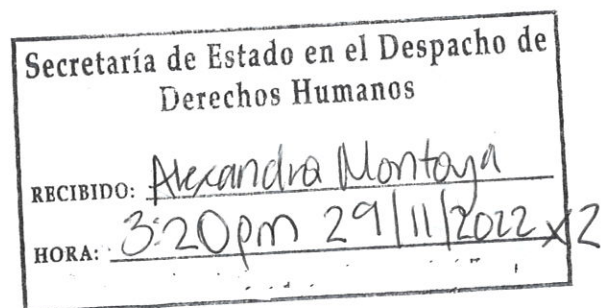 Secretaría de Estado en el Despacho de
Derechos Humanos
RECIBIDO: Alexandra Montoya
HORA: 3:20pm 29/11/2022 x2